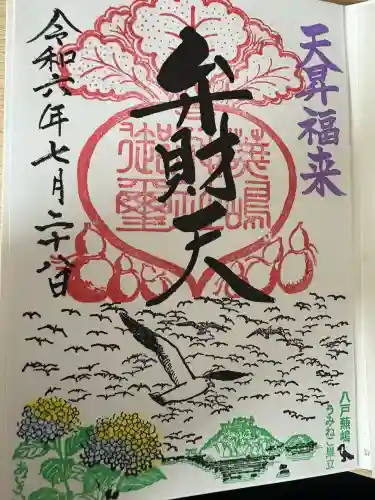 天昇福来
弁財天
蕪嶋
御璽
令和六年七月二十八日
八戸蕪嶋
うみねこ巣立